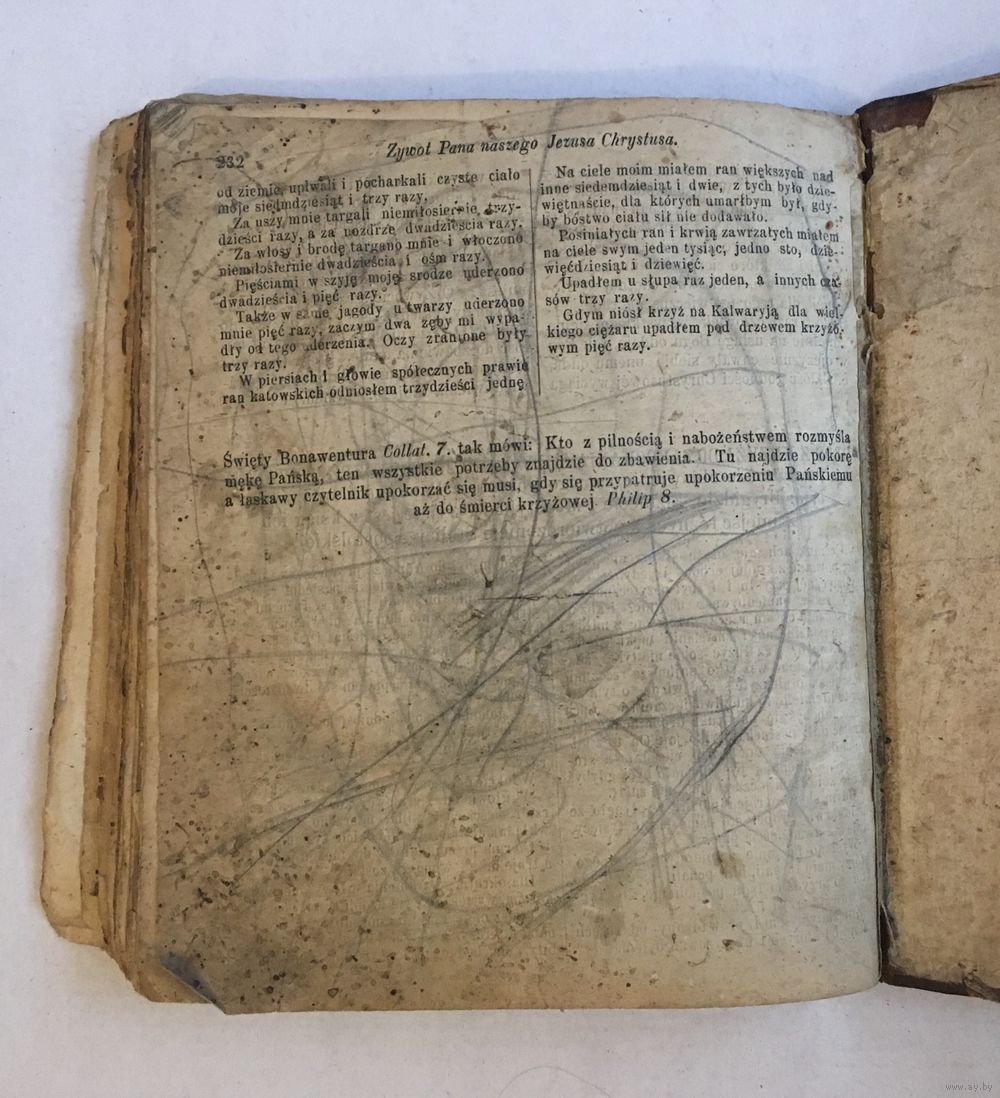 232
Zywot Pana naszego Jezusa Chrystusa.
od ziemie, uplwali i pocharkali czyste ciało
moje siedmdziesiąt i trzy razy.
Za uszy mnie targali niemiłosiernie trzy-
dzieści razy, a za nozdrze dwadzieścia razy.
Za włosy i brodę targano mnie i włoczono
niemiłosiernie dwadzieścia i ośm razy.
Pięściami w szyję moję srodze uderzono
dwadzieścia i pięć razy.
Także w same jagody u twarzy uderzono
mnie pięć razy, zaczym dwa zęby mi wypa-
dły od tego uderzenia. Oczy zranione były
trzy razy.
W piersiach i głowie spółecznych prawie
ran katowskich odniosłem trzydzieści jednę
Na ciele moim miałem ran większych nad
inne siedemdziesiąt i dwie, z tych było dzie-
więtnaście, dla których umarłbym był, gdy-
by bóstwo ciału sił nie dodawało.
Posiniałych ran i krwią zawrzałych miałem
na ciele swym jeden tysiąc, jedno sto, dzie-
więćdziesiąt i dziewięć.
Upadłem u słupa raz jeden, a innych cza-
sów trzy razy.
Gdym niósł krzyż na Kalwaryją dla wiel-
kiego ciężaru upadłem pod drzewem krzyżo-
wym pięć razy.
Święty Bonawentura Collat. 7. tak mówi: Kto z pilnością i nabożeństwem rozmyśla
mękę Pańską, ten wszystkie potrzeby znajdzie do zbawienia. Tu najdzie pokorę
a łaskawy czytelnik upokorzać się musi, gdy się przypatruje upokorzeniu Pańskiemu
aż do śmierci krzyżowej. Philip 8.
www.ay.by